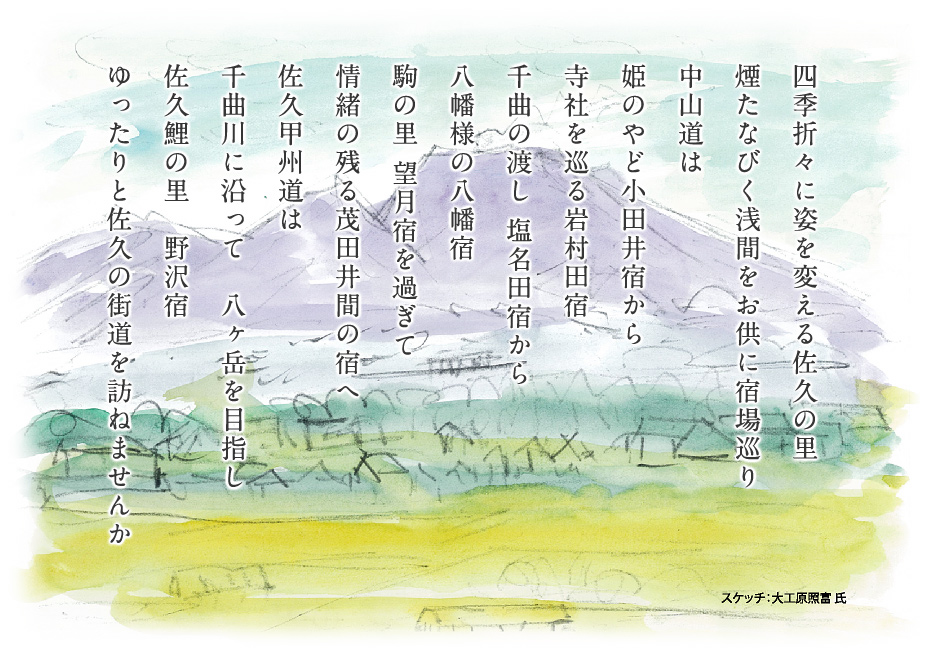 四季折々に姿を変える佐久の里
煙たなびく浅間をお供に宿場巡り
中山道は
姫のやど小田井宿から
寺社を巡る岩村田宿
千曲の渡し 塩名田宿から
八幡様の八幡宿
駒の里 望月宿を過ぎて
情緒の残る茂田井間の宿へ
佐久甲州道は
千曲川に沿って 八ヶ岳を目指し
佐久鯉の里 野沢宿
ゆったりと佐久の街道を訪ねませんか
スケッチ：大工原照富 氏